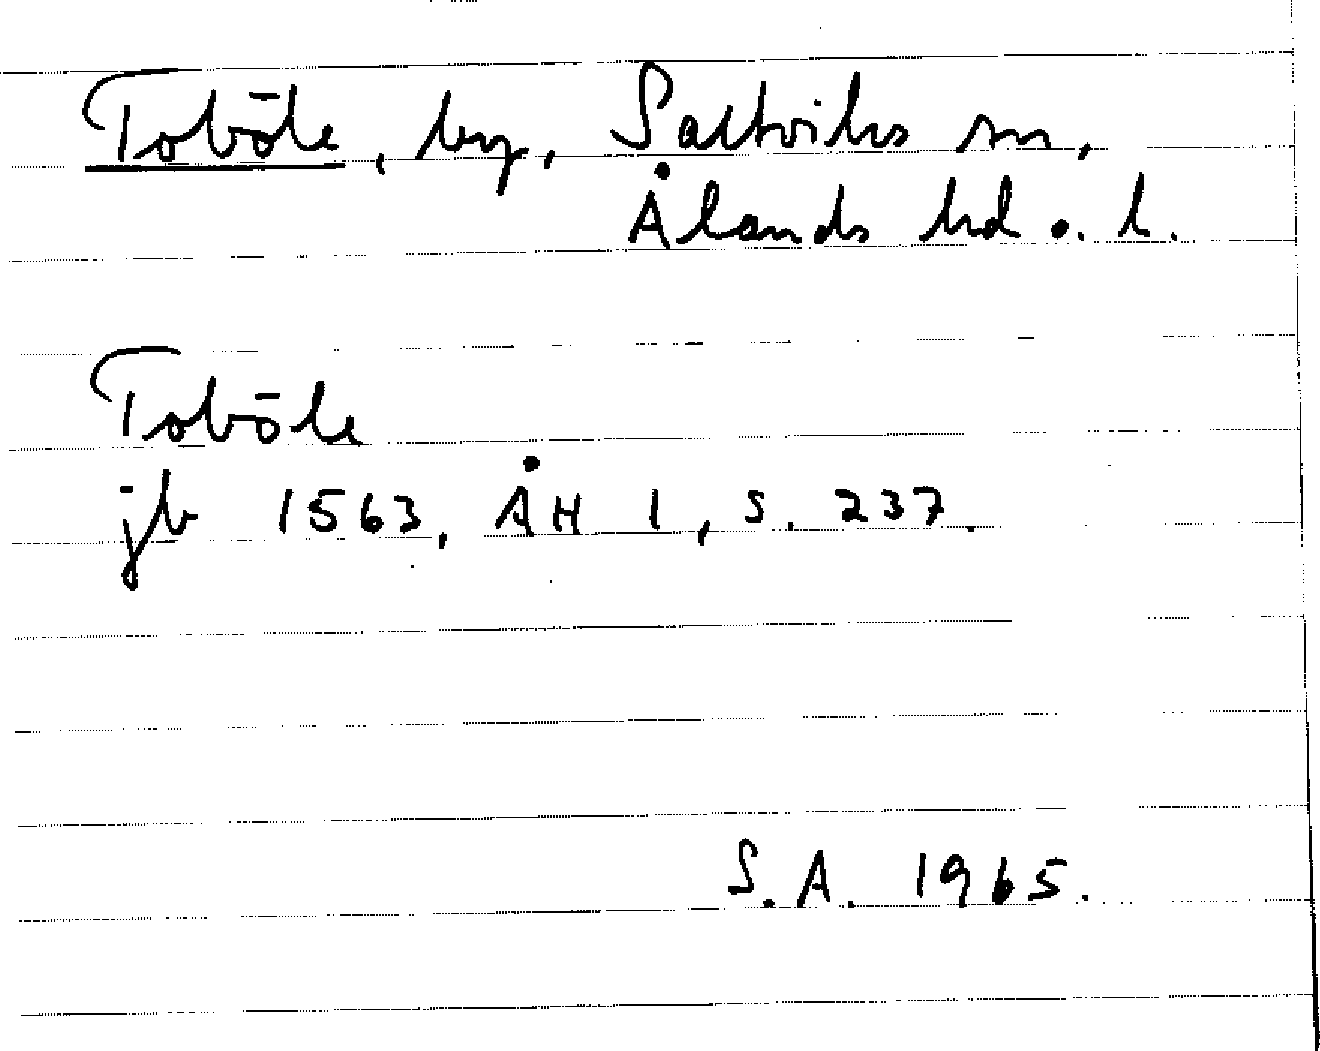 Toböle, by, Saltviks sn,
Ålands hd o. l.
Toböle
jb 1563, ÅH 1, s. 237.
S.A. 1965.